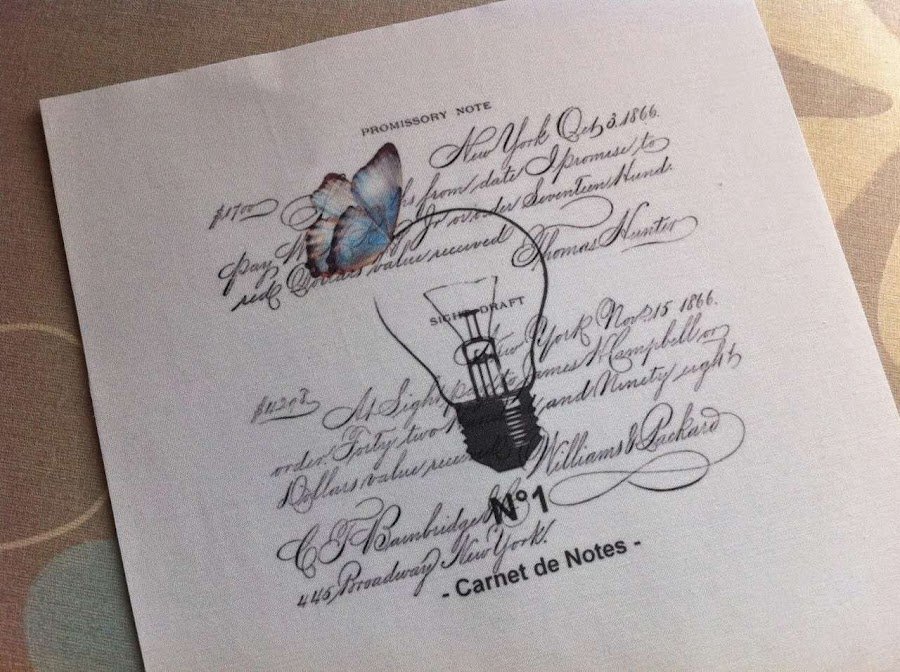 PROMISSORY NOTE
New York Oct 3. 1866.
$1700 from date I promise to
pay Jr or order Seventeen Hund-
red Dollars value received Thomas Hunter
SIGHT DRAFT
New York Nov. 15 1866.
$4298 At Sight pay to James H Campbell or
order Forty two and Ninety eight
Dollars value received Williams & Packard
C T Bainbridge &
N°1
445 Broadway New York.
- Carnet de Notes -